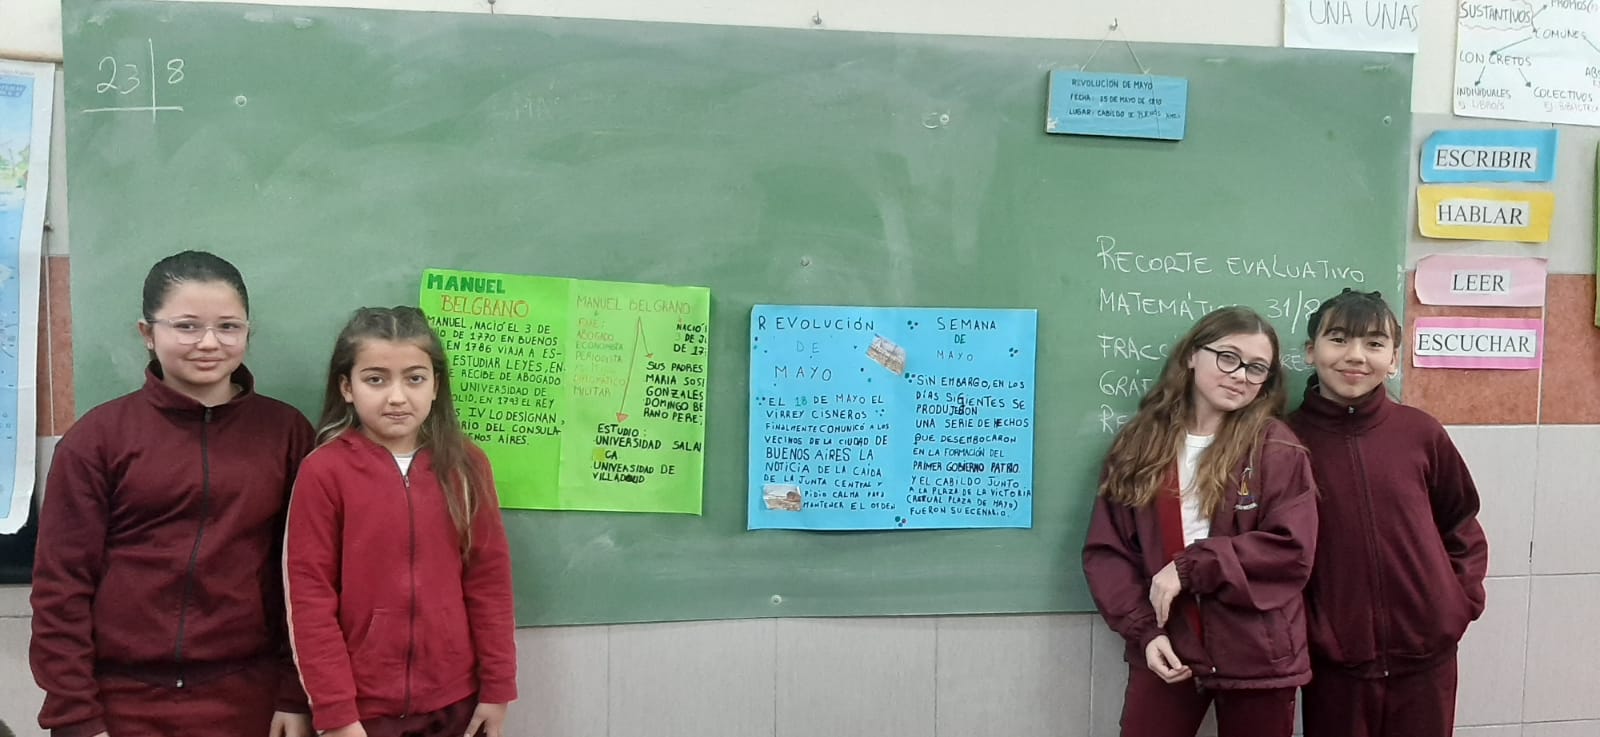 23|8
REVOLUCIÓN DE MAYO
FECHA: 25 DE MAYO DE 1810
LUGAR: CABILDO DE BUENOS AIRES
UNA UNAS
SUSTANTIVOS
COMUNES
CONCRETOS
INDIVIDUALES
EJ: LIBRO/S
COLECTIVOS
EJ: BIBLIOTECA
ESCRIBIR
HABLAR
LEER
ESCUCHAR
MANUEL
BELGRANO
MANUEL, NACIÓ EL 3 DE
DE 1770 EN BUENOS
EN 1786 VIAJA A ES-
ESTUDIAR LEYES, EN
RECIBE DE ABOGADO
UNIVERSIDAD DE
EN 1793 EL REY
IV LO DESIGNAN,
DEL CONSULA-
AIRES.
MANUEL BELGRANO
FUE:
ABOGADO
ECONOMISTA
PERIODISTA
POLÍTICO
DIPLOMATICO
MILITAR
NACIÓ
3 DE J
DE 17
SUS PADRES
MARIA SOSI
GONZALES
DOMINGO BE
RANO PERE
ESTUDIO:
UNIVERSIDAD SALA
CA
UNIVERSIDAD DE
VILLADOLID
REVOLUCIÓN
DE
MAYO
EL 18 DE MAYO EL
VIRREY CISNEROS
FINALMENTE COMUNICÓ A LOS
VECINOS DE LA CIUDAD DE
BUENOS AIRES LA
NOTICIA DE LA CAIDA
DE LA JUNTA CENTRAL Y
PIDIO CALMA PARA
MANTENER EL ORDEN
SEMANA
DE
MAYO
SIN EMBARGO, EN LOS
DÍAS SIGIENTES SE
PRODUJERON
UNA SERIE DE HECHOS
QUE DESEMBOCARON
EN LA FORMACIÓN DEL
PRIMER GOBIERNO PATRIO.
Y EL CABILDO JUNTO
A LA PLAZA DE LA VICTORIA
(ACTUAL PLAZA DE MAYO)
FUERON SU ECENARIO.
RECORTE EVALUATIVO
MATEMÁTI 31/8
FRACC
GRÁF
RE